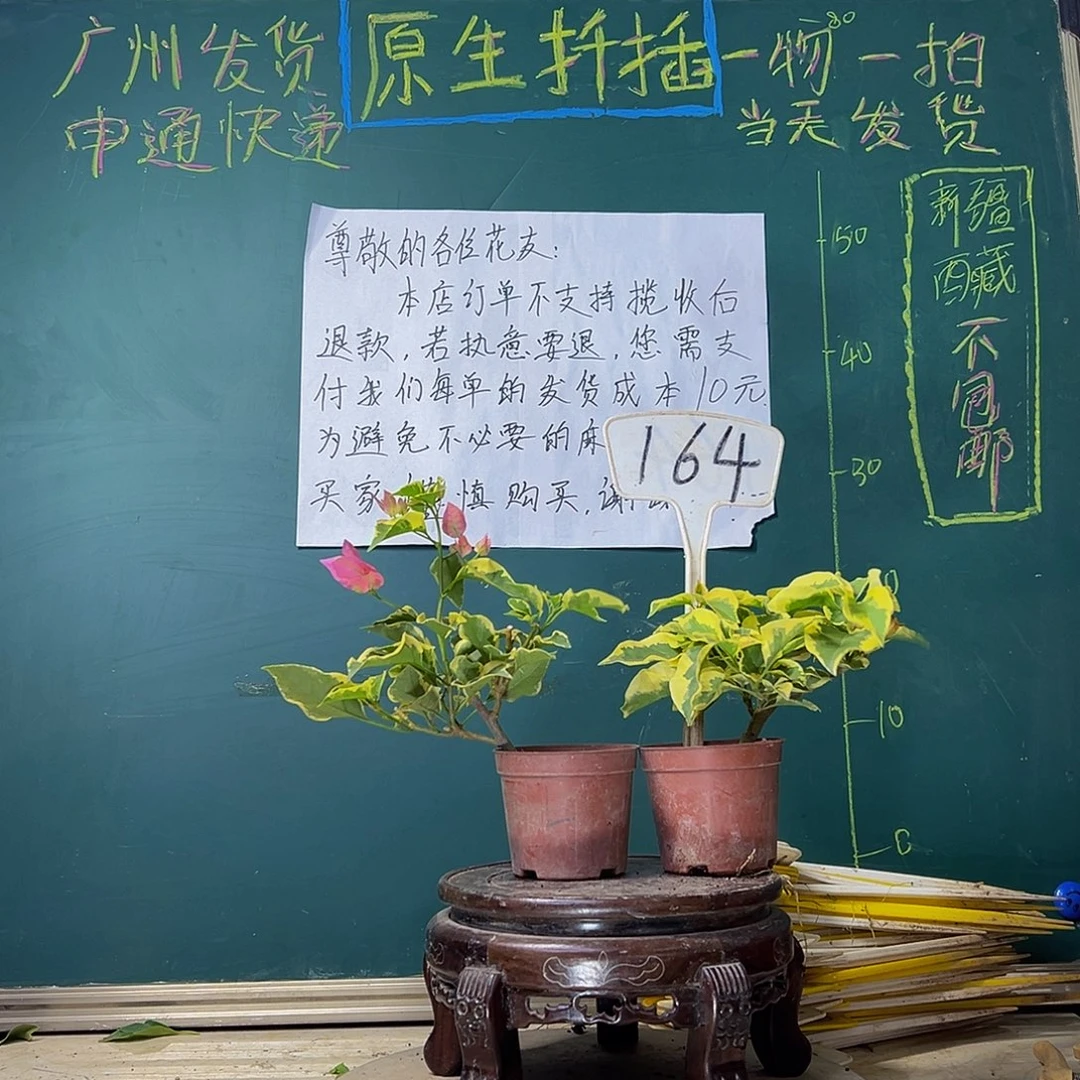 广州发货
申通快递
原生扦插
一物一拍
80
当天发货
新疆
西藏
不包邮
尊敬的各位花友：
本店订单不支持揽收后
退款，若执意要退，您需支
付我们每单的发货成本10元.
为避免不必要的麻
买家 慎购买，谢
164
50
40
30
10
0